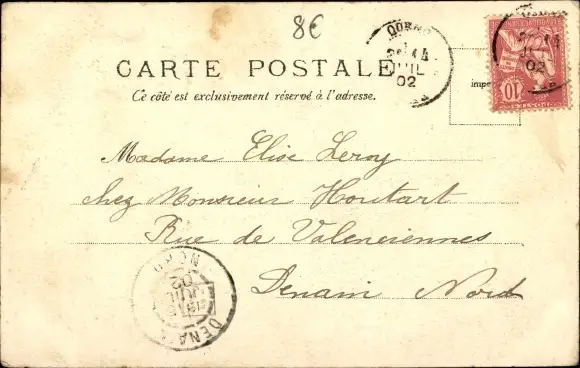 8€
CARTE POSTALE
Ce côté est exclusivement réservé à l'adresse.
14
JUIL
02
10
Madame Elise Leroy
chez Monsieur Houtart
Rue de Valenciennes
Denain Nord
DENAIN
NORD
JUIL
02